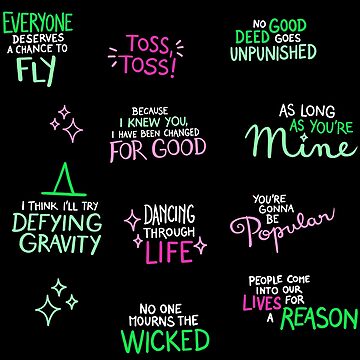 EVERYONE
DESERVES
A CHANCE TO
FLY
TOSS,
TOSS!
NO GOOD
DEED GOES
UNPUNISHED
BECAUSE
I KNEW YOU,
I HAVE BEEN CHANGED
FOR GOOD
AS LONG
AS YOU'RE
Mine
I THINK I'LL TRY
DEFYING
GRAVITY
DANCING
THROUGH
LIFE
YOU'RE
GONNA
BE
Popular
NO ONE
MOURNS THE
WICKED
PEOPLE COME
INTO OUR
LIVES FOR
A REASON